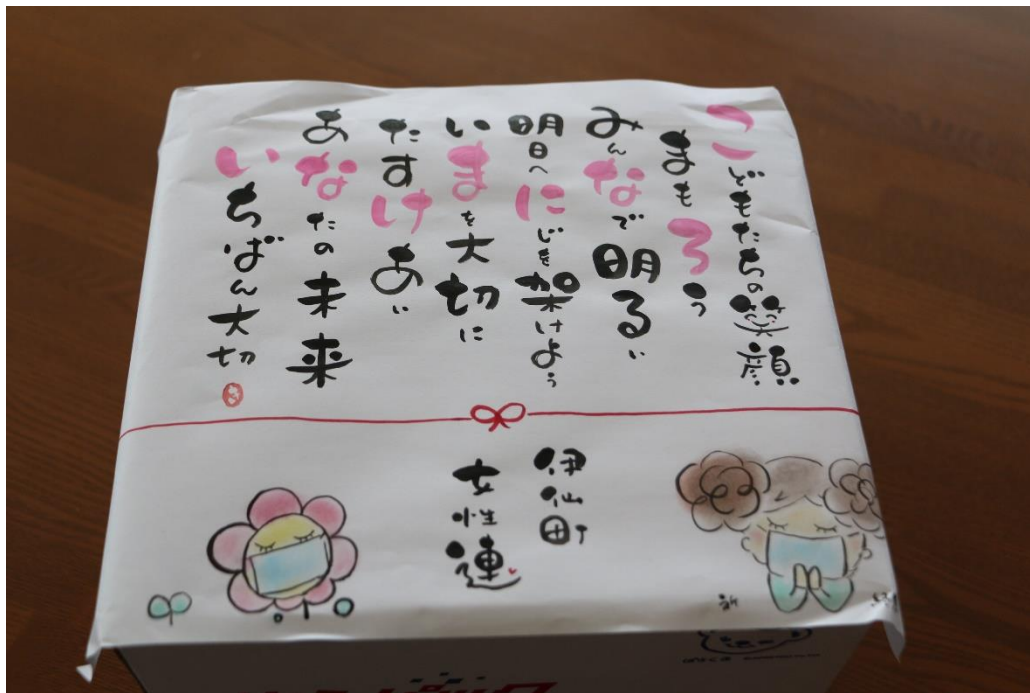 こどもたちの笑顔
まもろう
みんなで明るい
明日へにじを架けよう
いまを大切に
たすけあい
あなたの未来
いちばん大切
伊仙町
女性連